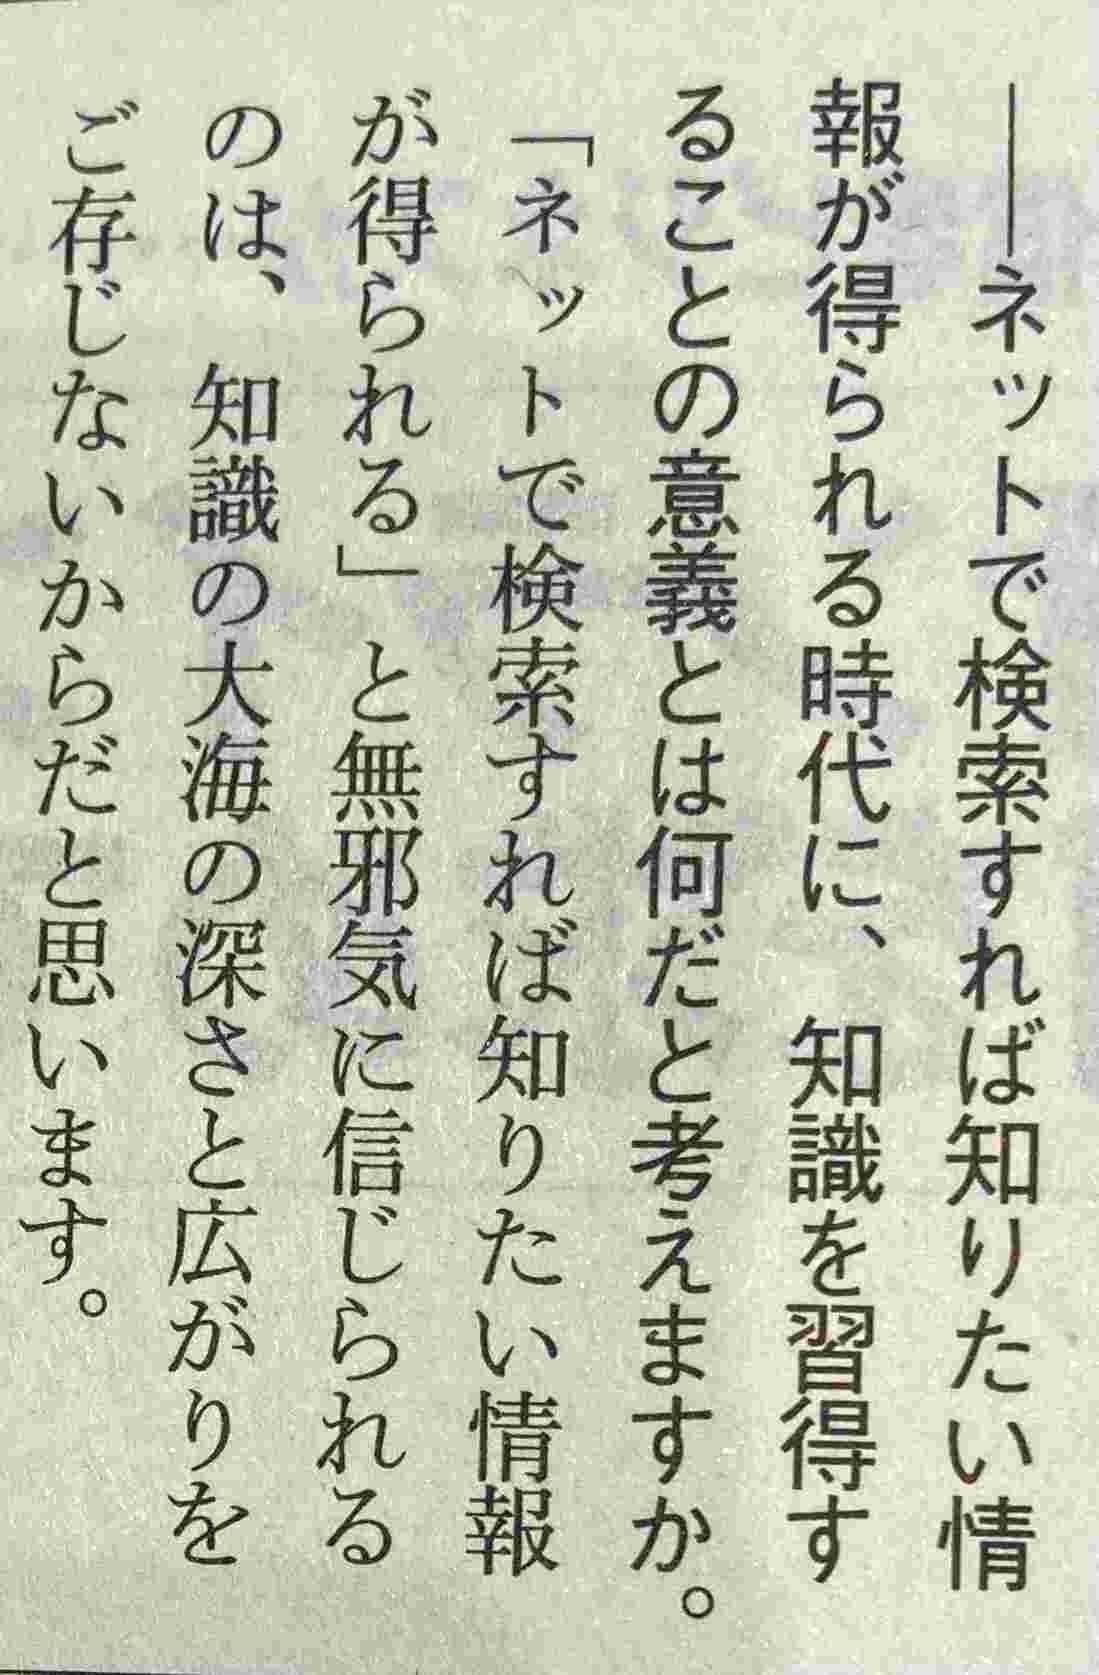 ――ネットで検索すれば知りたい情
報が得られる時代に、知識を習得す
ることの意義とは何だと考えますか。
「ネットで検索すれば知りたい情報
が得られる」と無邪気に信じられる
のは、知識の大海の深さと広がりを
ご存じないからだと思います。